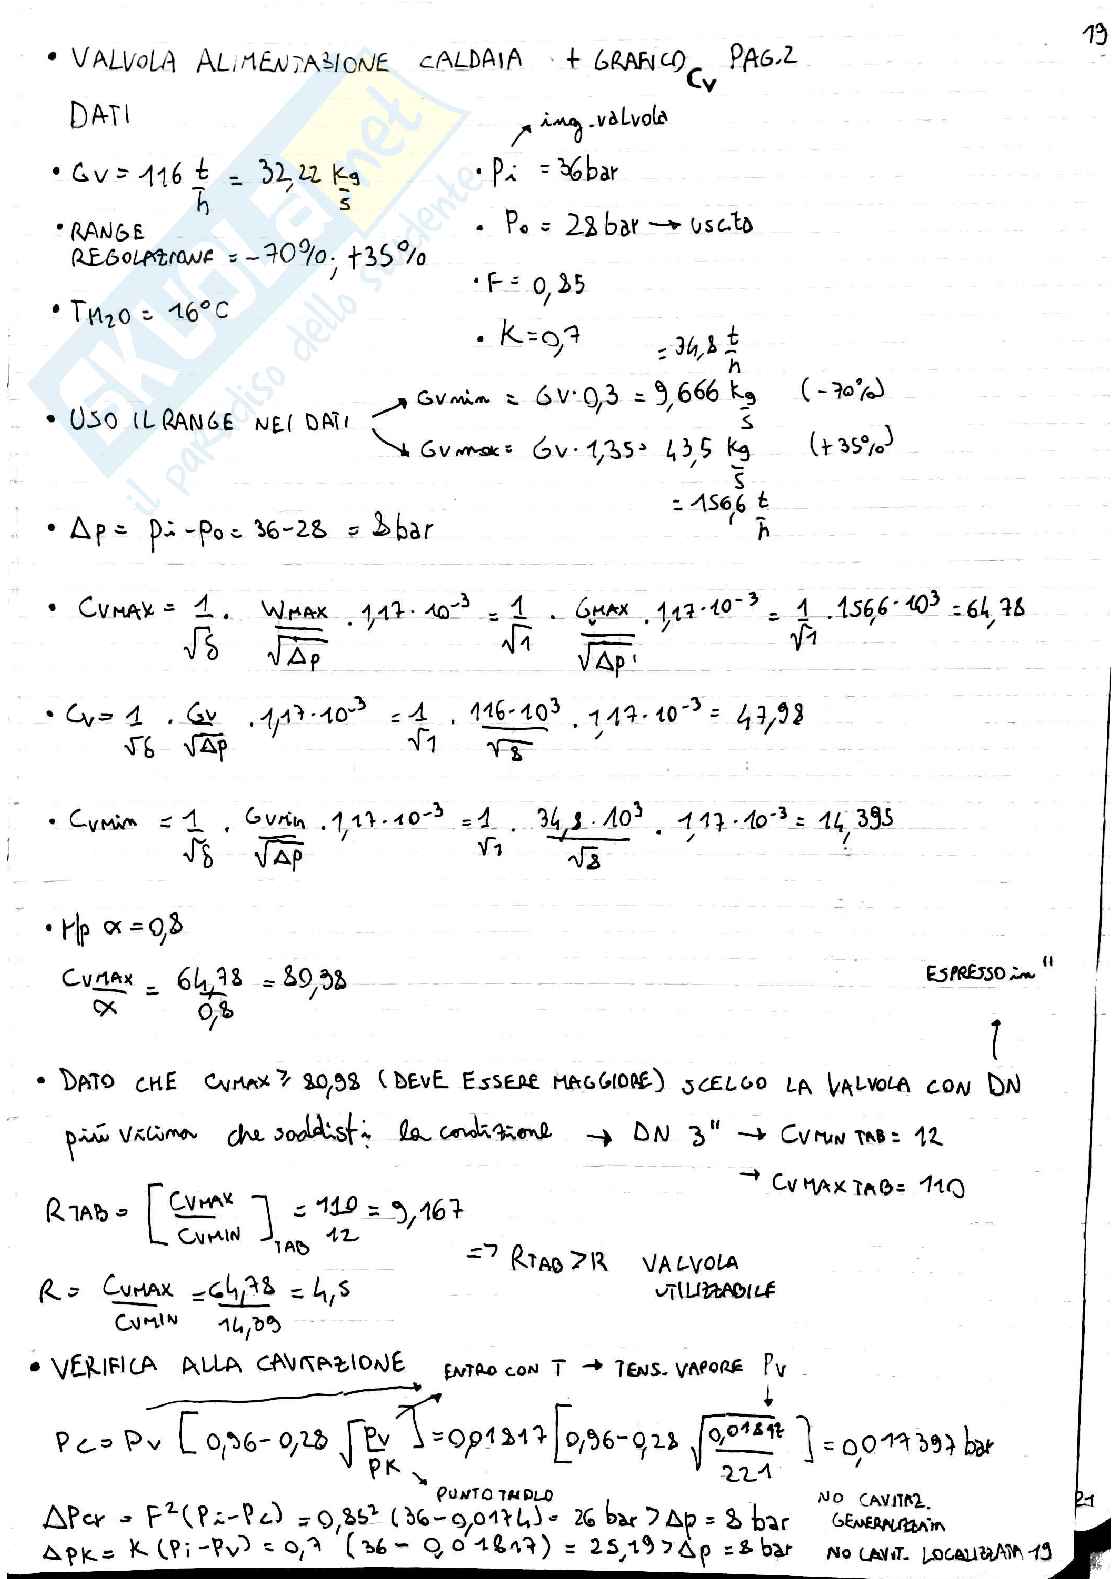 19
• VALVOLA ALIMENTAZIONE CALDAIA + GRAFICO Cv PAG.2
DATI
↗ ing. valvola
• Gv = 116 t/h = 32,22 Kg/s
• Pi = 36 bar
• RANGE
REGOLAZIONE = -70% ; +35%
• Po = 28 bar → uscita
• F = 0,85
• TH2O = 16°C
• K = 0,7
• USO IL RANGE NEI DATI
→ Gvmin = Gv·0,3 = 9,666 kg/s (-70%)
= 34,8 t/h
→ Gvmax = Gv·1,35 = 43,5 kg/s (+35%)
= 156,6 t/h
• Δp = pi - po = 36-28 = 8 bar
• CVMAX = 1/√δ · WMAX/√Δp · 1,17·10⁻³ = 1/√1 · GMAX/√Δp · 1,17·10⁻³ = 1/√1 · 156,6·10³ = 64,78
• Cv = 1/√δ · Gv/√Δp · 1,17·10⁻³ = 1/√1 · 116·10³/√8 · 1,17·10⁻³ = 47,98
• CVMIN = 1/√δ · GVMIN/√Δp · 1,17·10⁻³ = 1/√1 · 34,8·10³/√8 · 1,17·10⁻³ = 14,395
• Hp α = 0,8
CVMAX/α = 64,78/0,8 = 80,98
ESPRESSO in "
• DATO CHE CVMAX ≥ 80,98 (DEVE ESSERE MAGGIORE) SCELGO LA VALVOLA CON DN
più vicina che soddisfi la condizione → DN 3" → CVMIN TAB = 12
→ CVMAX TAB = 110
RTAB = [CVMAX/CVMIN]TAB = 110/12 = 9,167
=> RTAB > R VALVOLA
UTILIZZABILE
R = CVMAX/CVMIN = 64,78/14,39 = 4,5
• VERIFICA ALLA CAVITAZIONE ENTRO CON T → TENS. VAPORE Pv
Pc = Pv [0,96-0,28 √(Pv/PK)] = 0,01817 [0,96-0,28 √(0,01817/221)] = 0,017397 bar
PUNTO TRIPLO
ΔPcr = F²(Pi-Pc) = 0,85² (36-0,0174) = 26 bar > Δp = 8 bar NO CAVITAZ.
GENERALIZZATA
ΔPK = K(Pi-Pv) = 0,7 (36-0,01817) = 25,19 > Δp = 8 bar NO CAVIT. LOCALIZZATA 19
21
SKUOLA.net
il paradiso dello studente